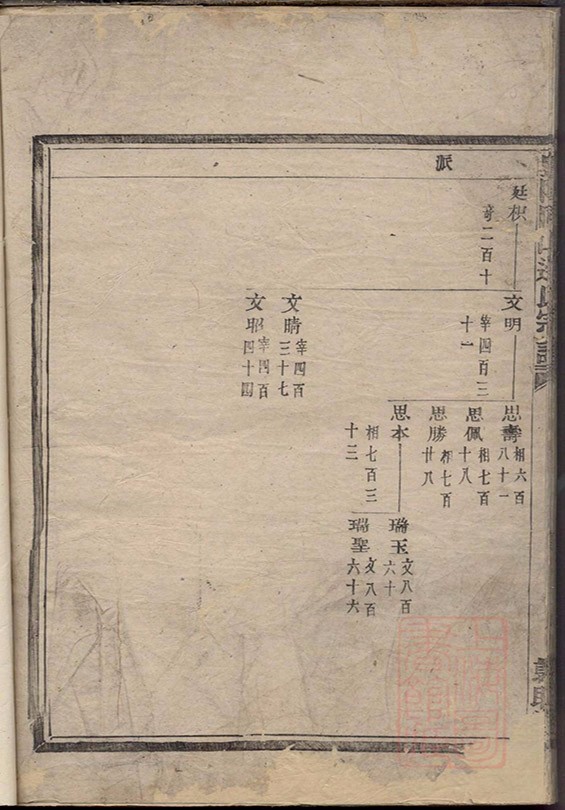 派
延枳
奇二百十
文明
宰四百三
十一
思壽
相六百
八十一
思佩
相七百
十八
思勝
相七百
廿八
思本
相七百三
十三
瑞玉
文八百
六十
瑞聖
文八百
六十六
文晴
宰四百
三十七
文昭
宰四百
四十四